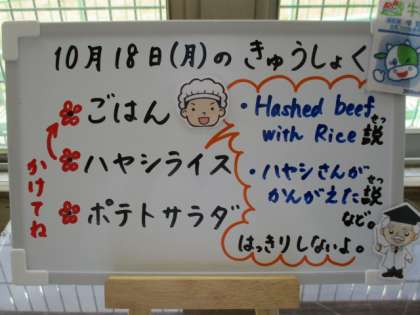 10月18日(月)のきゅうしょく
ごはん
ハヤシライス
ポテトサラダ
かけてね
・Hashed beef
with Rice説
せつ
・ハヤシさんが
かんがえた説
せつ
など。
はっきりしないよ。